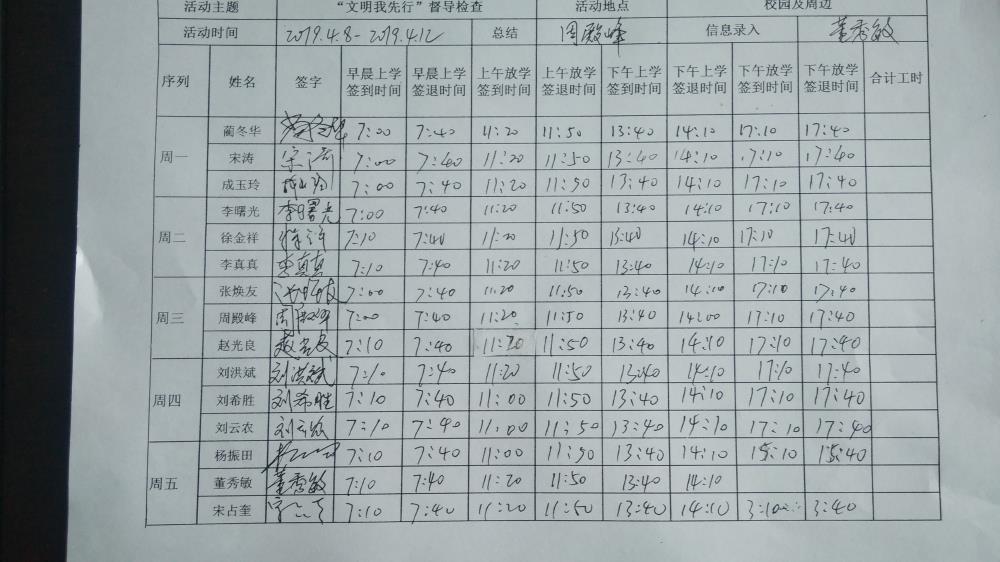 活动主题 "文明我先行"督导检查 活动地点 校园及周边
活动时间 2019.4.8-2019.4.12 总结 周殿峰 信息录入 董秀敏
序列 姓名 签字 早晨上学签到时间 早晨上学签退时间 上午放学签到时间 上午放学签退时间 下午上学签到时间 下午上学签退时间 下午放学签到时间 下午放学签退时间 合计工时
周一 蔺冬华 7:00 7:40 11:20 11:50 13:40 14:10 17:10 17:40
宋涛 宋涛 7:00 7:40 11:20 11:50 13:40 14:10 17:10 17:40
成玉玲 7:00 7:40 11:20 11:50 13:40 14:10 17:10 17:40
周二 李曙光 李曙光 7:00 7:40 11:20 11:50 13:40 14:10 17:10 17:40
徐金祥 7:10 7:40 11:20 11:50 13:40 14:10 17:10 17:40
李真真 李真真 7:10 7:40 11:20 11:50 13:40 14:10 17:10 17:40
周三 张焕友 7:00 7:40 11:20 11:50 13:40 14:10 17:10 17:40
周殿峰 周殿峰 7:00 7:40 11:20 11:50 13:40 14:00 17:10 17:40
赵光良 7:10 7:40 11:20 11:50 13:40 14:10 17:10 17:40
周四 刘洪斌 刘洪斌 7:10 7:40 11:20 11:50 13:40 14:10 17:10 17:40
刘希胜 刘希胜 7:10 7:40 11:00 11:50 13:40 14:10 17:10 17:40
刘云农 刘云农 7:10 7:40 11:00 11:50 13:40 14:10 17:10 17:40
周五 杨振田 7:10 7:40 11:00 11:50 13:40 14:10 15:10 15:40
董秀敏 董秀敏 7:10 7:40 11:20 11:50 13:40 14:10
宋占奎 7:10 7:40 11:20 11:50 13:40 14:10 3:10 3:40